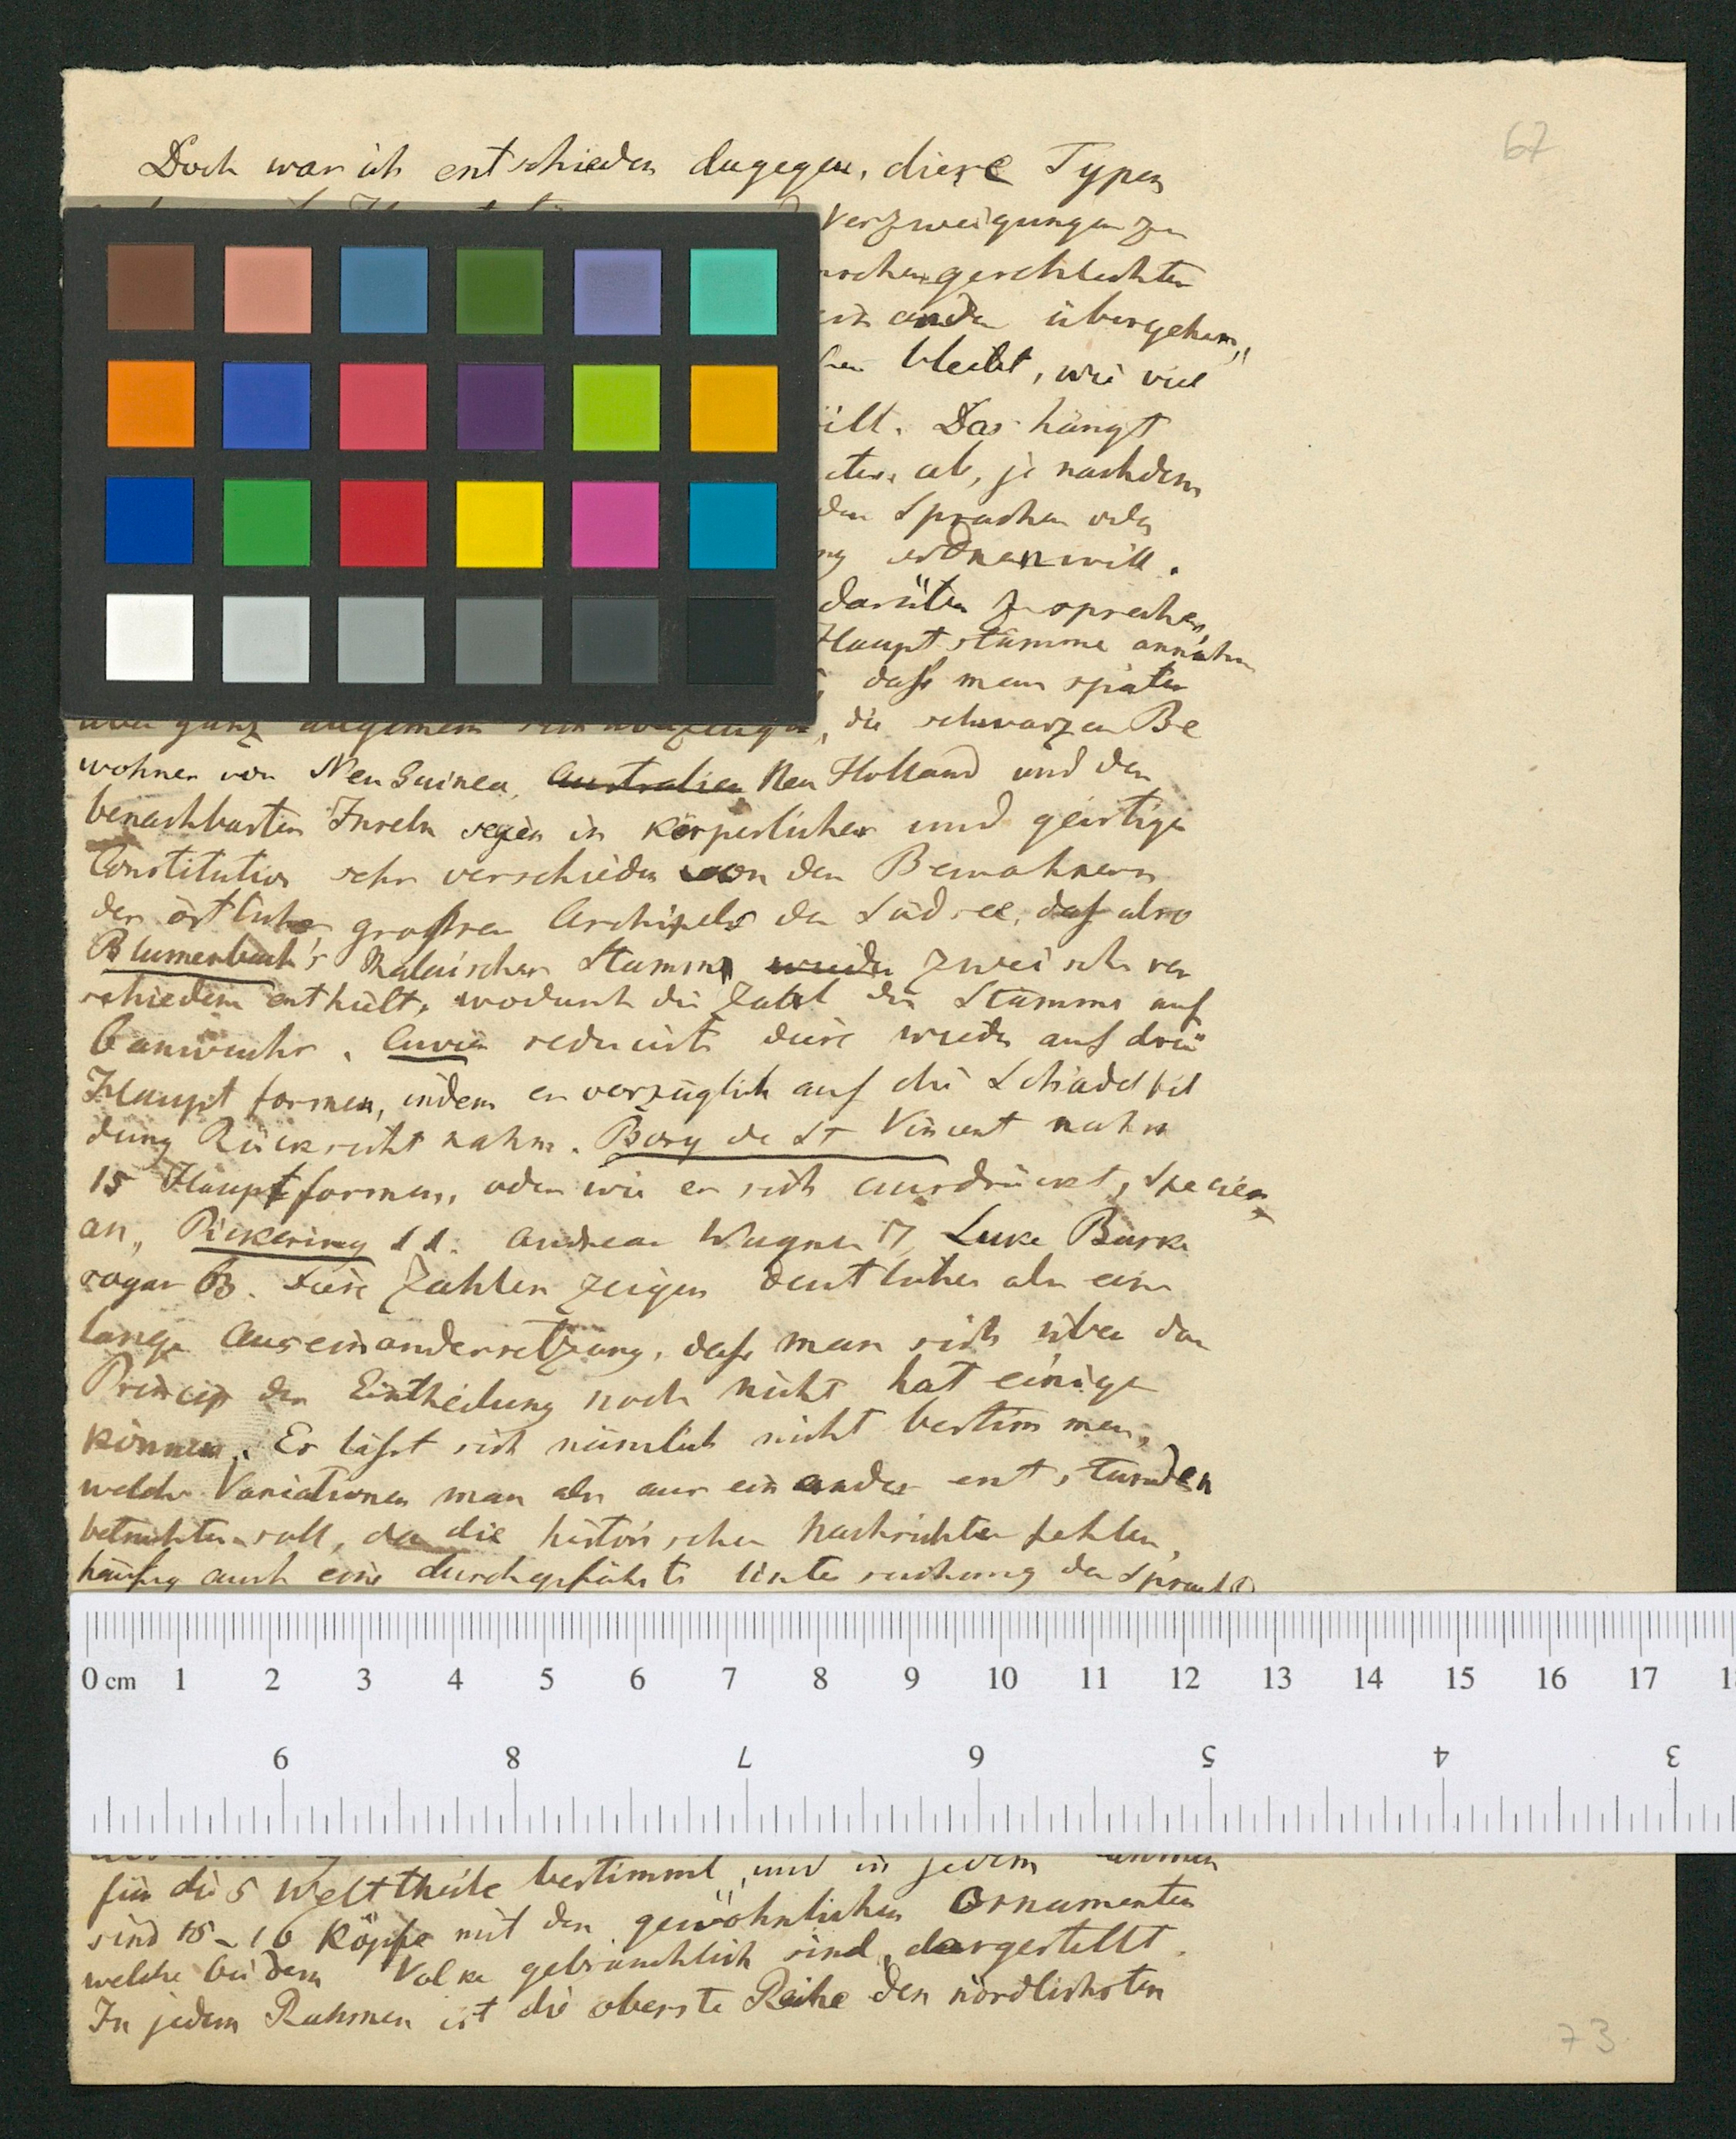 67
Doch war ich entschieden dagegen, diese Typen
Verzweigungen zu
geschlechter
ein ander übergehen,
bleibt, wie viel
Das hängt
ab, je nachdem
den Sprachen oder
ordnen will.
darüber zu sprechen,
Hauptstämme annahm
daß man später
aber ganz allgemein sich überzeugte, die schwarzen Be
wohner von Neu Guinea, Australien Neu Holland und der
benachbarten Inseln seyen in körperlicher und geistiger
Constitution sehr verschieden von den Bewohnern
der östlichen großen Archipels der Südsee, daß also
Blumenbach's Malaischer Stamm wieder zwei sehr ver
schiedene enthält, wodurch die Zahl der Stämme auf
6 anwuchs. Cuvier reducirte diese wieder auf drei
Hauptformen, indem er vorzüglich auf die Schädelbil
dung Rücksicht nahm. Bory de St Vincent nahm
15 Hauptformen, oder wie er sich ausdrückt, Species
an, Pickering 11. Andreas Wagner 7, Luke Burke
sogar 63. Diese Zahlen zeigen deutlicher als eine
lange Auseinandersetzung, daß man sich über das
Princip der Eintheilung noch nicht hat einigen
können. Es läßt sich nämlich nicht bestimmen,
welche Variationen man als aus einander entstanden
betrachten soll, da die historischen Nachrichten fehlen,
häufig auch eine durchgeführte Untersuchung der Sprache
0 cm 1 2 3 4 5 6 7 8 9 10 11 12 13 14 15 16 17
9 8 7 6 5 4 3
für die 5 Welttheile bestimmt, und in jedem Rahmen
sind 15-16 Köpfe mit den gewöhnlichen Ornamenten
welche bei dem Volke gebräuchlich sind, dargestellt.
In jedem Rahmen ist die oberste Reihe den nördlichsten
73